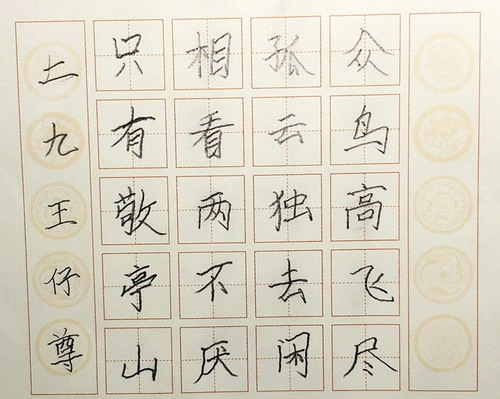 众鸟高飞尽
孤云独去闲
相看两不厌
只有敬亭山
九王仔尊